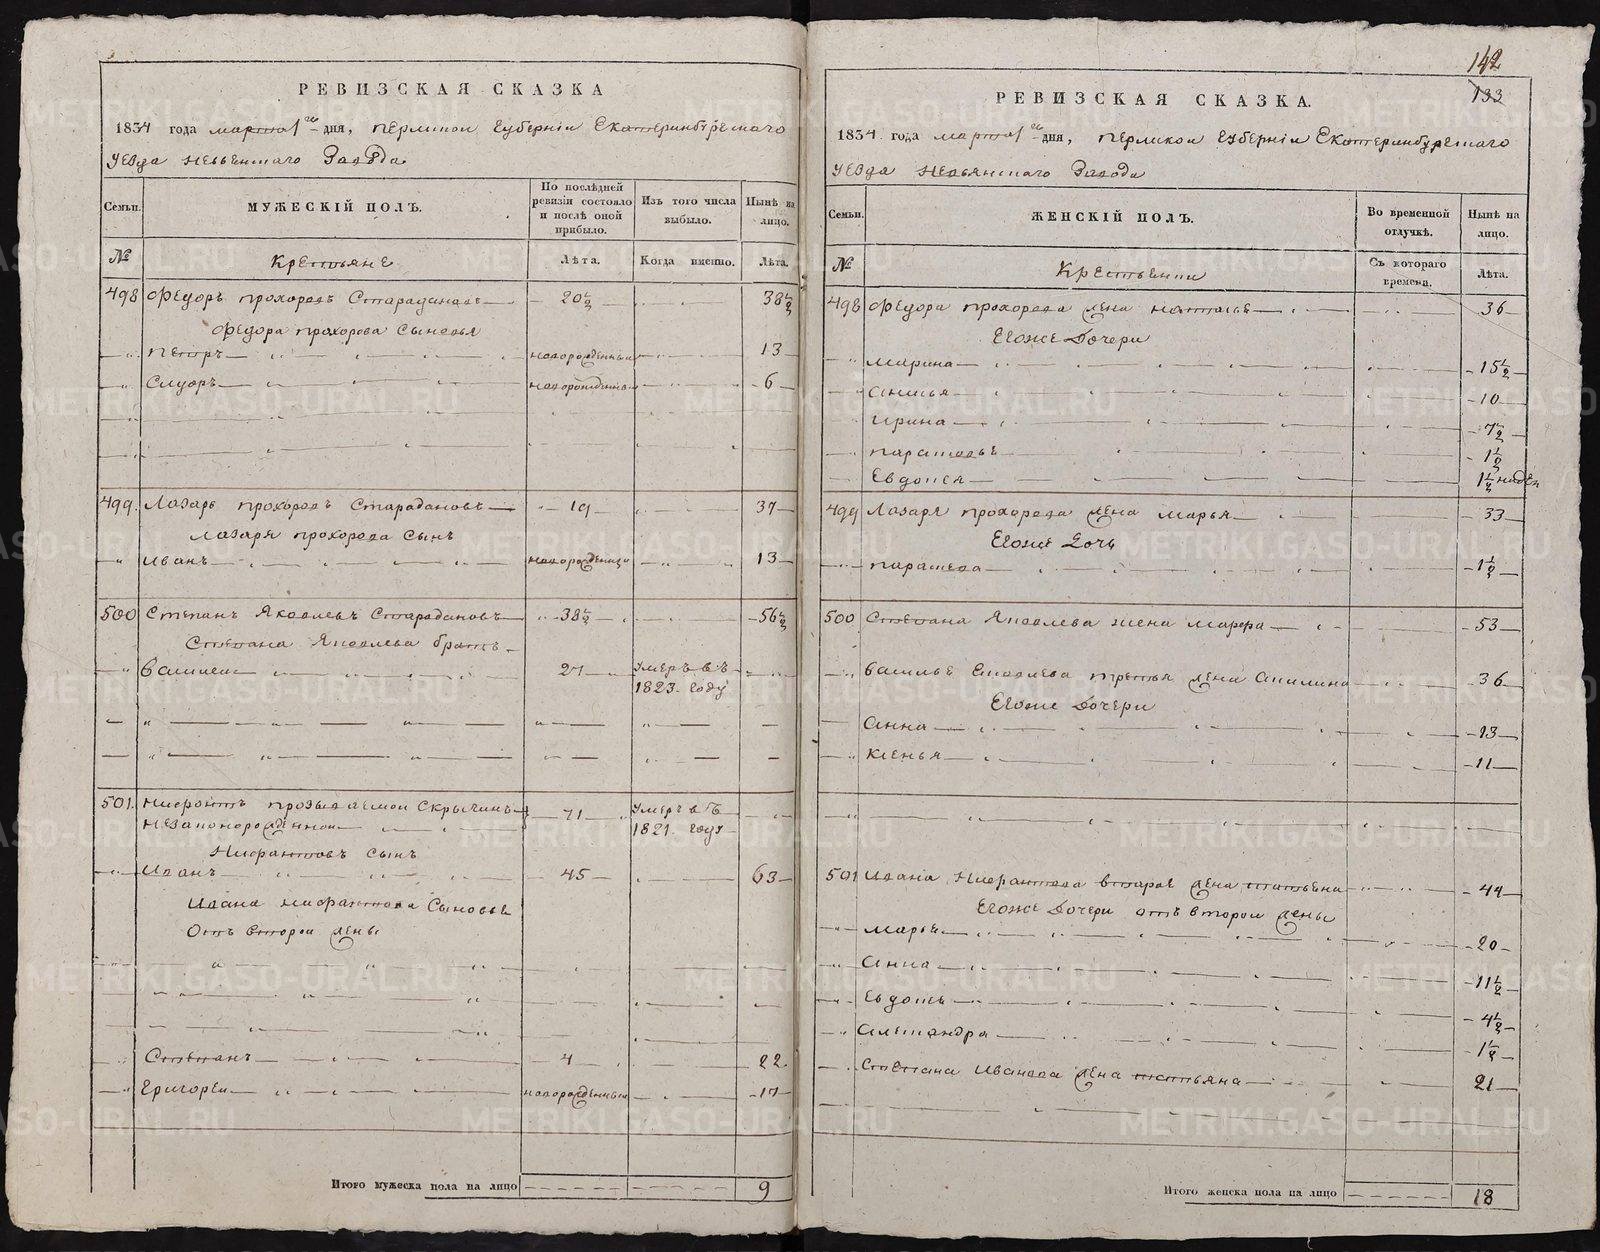 РЕВИЗСКАЯ СКАЗКА
1834 года марта 1го дня, пермской губернiи Екатеринбурскаго
уезда Невьенскаго Завода
Семьи.
МУЖЕСКIЙ ПОЛЪ.
По послѣдней ревизiи состояло и послѣ оной прибыло.
Изъ того числа выбыло.
Нынѣ на лицо.
№
Крестьяне
Лѣта.
Когда именно.
Лѣта.
498 Федоръ прохоровъ Старадановъ 20½ 38½
Федора прохорова сыновья
Петръ новорожденный 13
новорожденный 6
499. Лазарь прохоровъ Старадановъ 19 37
Лазаря прохорова Сынъ
Иванъ 13
500 Степанъ Яковлевъ Старадановъ 38½ 56½
Степана Яковлева братъ
Василеи 27 умеръ въ
1823 году
501. Ниѳонтъ прозываемои Скрычинъ 71 Умеръ въ
незаконорожденнои 1821 году
сынъ
Иванъ 45 63
Ивана Сыновье
Отъ второй жены
Степанъ 4 22
Григореи новорожденныи 17
Итого мужеска пола на лицо 9
142
133
РЕВИЗСКАЯ СКАЗКА.
1834 года марта 1го дня, пермскои губернiи Екатеринбурскаго
уезда Невьянскаго Завода
Семьи.
ЖЕНСКIЙ ПОЛЪ.
Во временной отлучкѣ.
Нынѣ на лицо.
№
Крестьенки
Съ котораго времена.
Лѣта.
498 Федора прохорова жена наталье 36
Егоже Дочери
Марина 15½
Анисья 10
Ирина 7½
парасковье 1½
Евдокея 1½
499 Лазаря прохорова жена Марья 33
Егоже Дочь
1½
500 Степана Яковлева жена марфа 53
Василье Яковлева третья жена Акилина 36
Егоже Дочери
Анна 13
Ксенья 11
501 Ивана вторая жена татьена 44
Егоже Дочери отъ второи жены
Марья 20
Анна 11½
Евдокья 4½
Александра 1½
Степана Иванова жена татьяна 21
Итого женска пола на лицо 18
METRIKI.GASO-URAL.RU